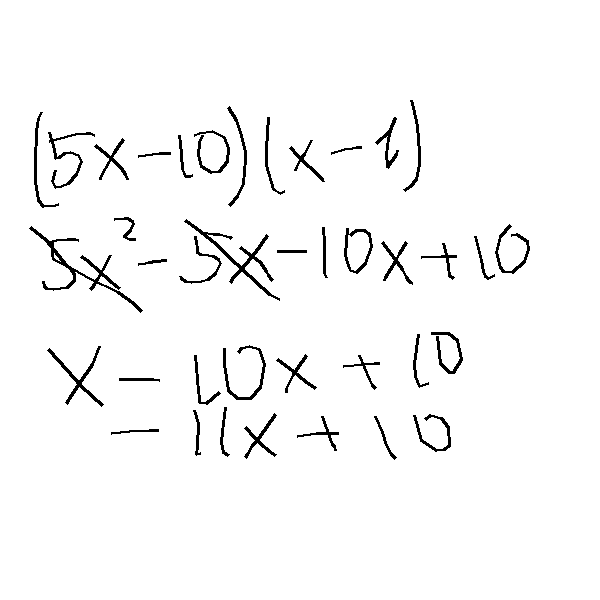 (5x-10)(x-1)
5x²-5x-10x+10
x-10x+10
-11x+10